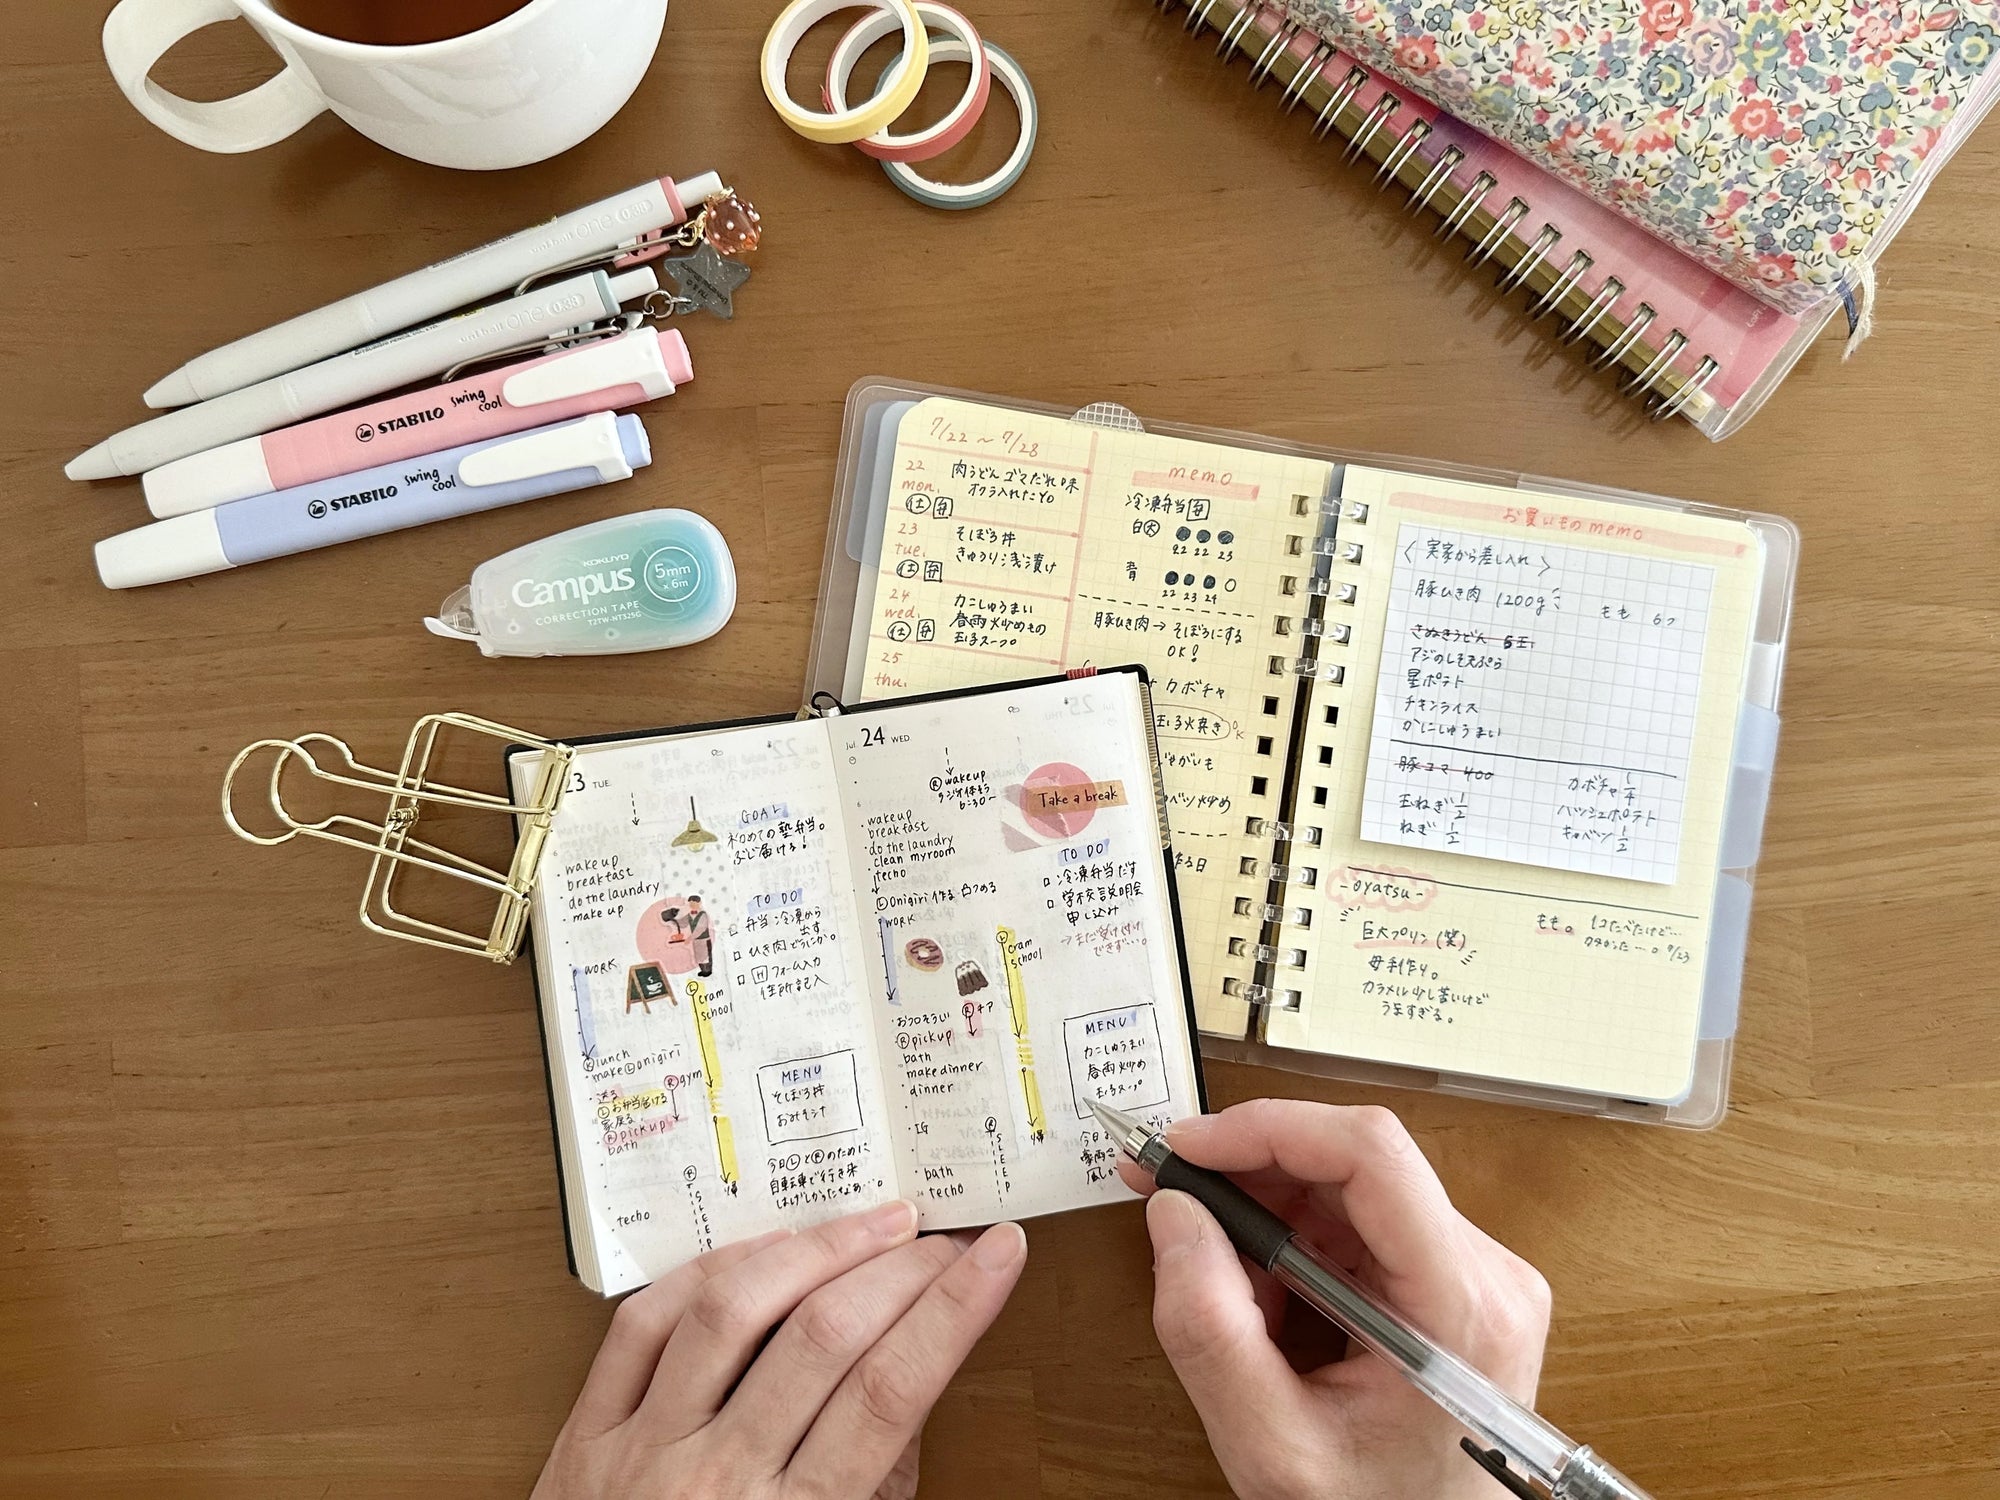 uni-ball one 0.38
uni-ball one 0.38
STABILO swing cool
STABILO swing cool
KOKUYO
Campus
5mm
× 6m
CORRECTION TAPE
T2TW-NT325G
7/22 ~ 7/28
22
mon.
仕 弁
肉うどん ゴマだれ味
オクラ入れたよ
23
tue.
仕 弁
そぼろ丼
きゅうり浅漬け
24
wed.
仕 弁
カニしゅうまい
春雨炒めもの
玉子スープ
25
thu.
memo
冷凍弁当 弁
白 大
22 22 23
青
22 23 24
豚ひき肉→そぼろにする
OK!
カボチャ
玉子焼き
OK
お買いもの memo
〈実家から差し入れ〉
豚ひき肉 1200g
もも 6つ
さぬきうどん 5玉
アジのしそ天ぷら
星ポテト
チキンライス
かにしゅうまい
豚コマ 400
玉ねぎ 1/2
ねぎ 1/2
カボチャ 1/4
ハッシュポテト
キャベツ 1/2
- oyatsu -
巨大プリン(笑)
母手作り。
カラメル少し苦いけど
うますぎる。
もも。
7/23
23 TUE.
wake up
breakfast
do the laundry
make up
WORK
lunch
make Ⓛ onigiri
送る
Ⓛ お弁当届ける
家戻る
Ⓡ pick up
bath
techo
24
Ⓡ gym
Ⓛ cram
school
帰
Ⓡ
SLEEP
GOAL
初めての塾弁当。
ぶじ届ける!
TO DO
□ 弁当 冷凍から
出す
□ ひき肉どうにか。
□ H フォーム入力
住所記入
MENU
そぼろ丼
おみそ汁
今日ⓁとⓇのために
自転車で行き来
はげしかったなあ…。
Jul 24 WED.
Ⓡ wake up
ラジオ体そう
6:30~
6
wake up
breakfast
do the laundry
clean my room
techo
Ⓛ Onigiri 作る
WORK
おフロそうじ
Ⓡ pick up
bath
make dinner
dinner
IG
bath
techo
24
Ⓡ チア
Ⓛ cram
school
帰
Ⓡ
SLEEP
Take a break
TO DO
□ 冷凍弁当だす
□ 学校説明会
申し込み
→まだ受け付け
できず…。
MENU
カニしゅうまい
春雨炒め
玉子スープ